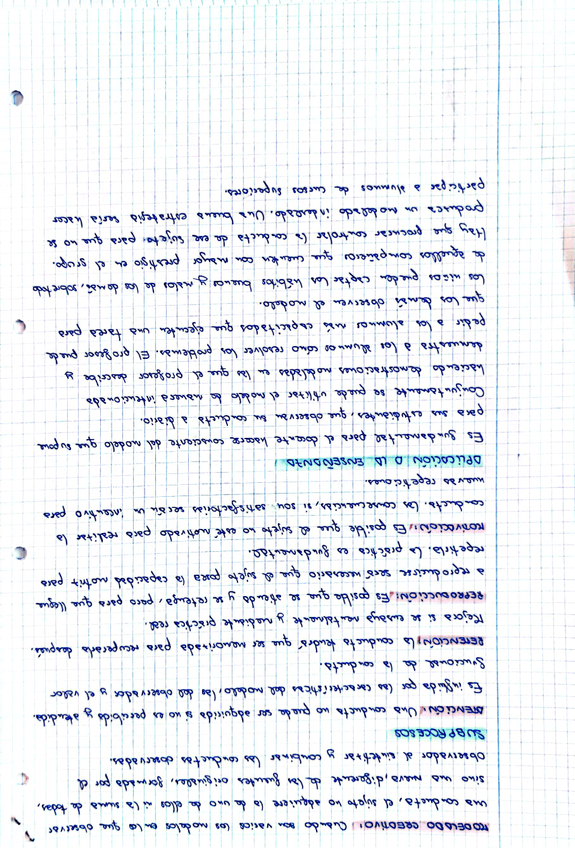 MODELADO CREATIVO: Cuando son varios los modelos en los que observar
una conducta, el sujeto no adquiere la de uno de ellos ni la suma de todas,
sino una nueva, diferente de las fuentes originales, formada por el
observador al sintetizar y combinar las conductas observadas.
SUBPROCESOS
ATENCIÓN: Una conducta no puede ser adquirida si no es percibida y atendida.
Es influida por las características del modelo, las del observador y el valor
funcional de la conducta.
RETENCIÓN: La conducta tendrá que ser memorizada para recuperarla después.
Mejora si se ensaya mentalmente y mediante práctica real.
REPRODUCCIÓN: Es posible que se atienda y se retenga, pero para que llegue
a reproducirse será necesario que el sujeto posea la capacidad motriz para
repetirla. La práctica es fundamental.
MOTIVACIÓN: Es posible que el sujeto no esté motivado para realizar la
conducta. Las consecuencias, si son satisfactorias serán un incentivo para
nuevas repeticiones.
APLICACIÓN A LA ENSEÑANZA:
Es fundamental para el docente hacerse consciente del modelo que supone
para sus estudiantes, que observan su conducta a diario.
Conjuntamente se puede utilizar el modelo de manera intencionada
haciendo demostraciones modeladas en las que el profesor describe y
demuestra a los alumnos cómo resolver los problemas. El profesor puede
pedir a los alumnos más capacitados que ejecuten una tarea para
que los demás observen el modelo.
Los niños pueden captar los hábitos buenos y malos de los demás, sobre todo
de aquellos compañeros que cuenten con mayor prestigio en el grupo.
Hay que procurar controlar la conducta de ese sujeto para que no se
produzca un modelado indeseado. Una buena estrategia sería hacer
participar a alumnos de cursos superiores.